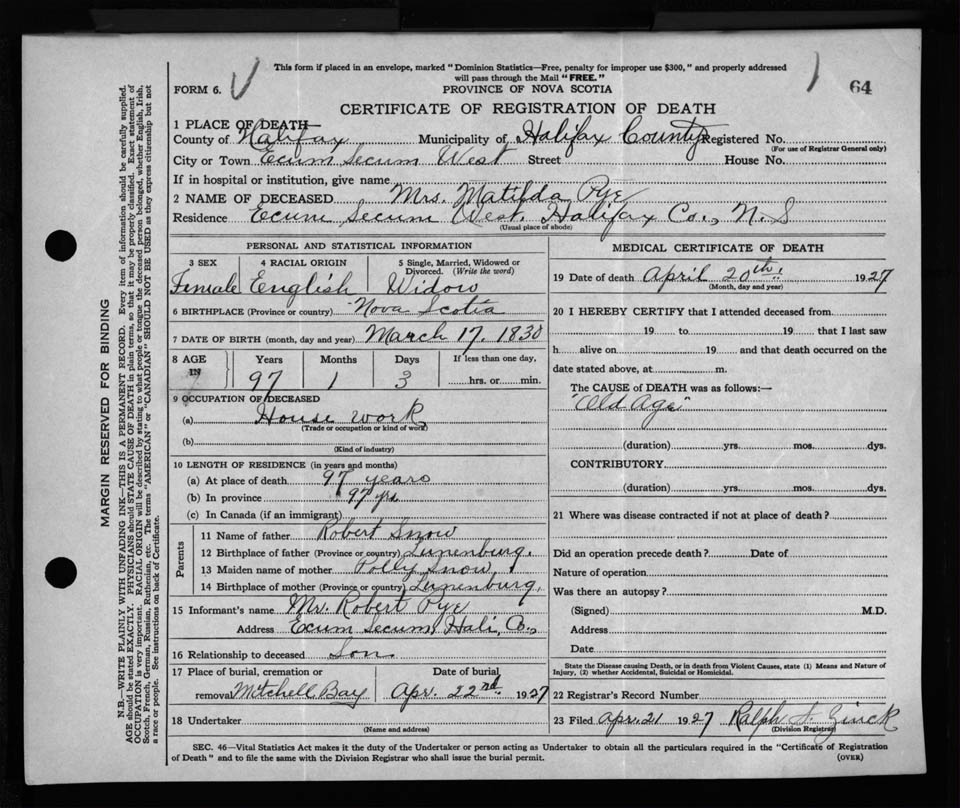 This form if placed in an envelope, marked "Dominion Statistics—Free, penalty for improper use $300," and properly addressed
will pass through the Mail "FREE."
FORM 6.
PROVINCE OF NOVA SCOTIA
64
CERTIFICATE OF REGISTRATION OF DEATH
1 PLACE OF DEATH
County of Halifax Municipality of Halifax County Registered No.
(For use of Registrar General only)
City or Town Ecum Secum West Street House No.
If in hospital or institution, give name
2 NAME OF DECEASED Mrs. Matilda Pye
Residence Ecum Secum West, Halifax Co., N.S
(Usual place of abode)
PERSONAL AND STATISTICAL INFORMATION
3 SEX 4 RACIAL ORIGIN 5 Single, Married, Widowed or Divorced. (Write the word)
Female English Widow
6 BIRTHPLACE (Province or country) Nova Scotia
7 DATE OF BIRTH (month, day and year) March 17, 1830
8 AGE IN Years Months Days If less than one day,
97 1 3 hrs. or min.
9 OCCUPATION OF DECEASED
(a) House work
(Trade or occupation or kind of work)
(b)
(Kind of industry)
10 LENGTH OF RESIDENCE (in years and months)
(a) At place of death 97 years
(b) In province 97 yrs
(c) In Canada (if an immigrant)
Parents
11 Name of father Robert Snow
12 Birthplace of father (Province or country) Lunenburg,
13 Maiden name of mother Polly Snow,
14 Birthplace of mother (Province or country) Lunenburg,
15 Informant's name Mr. Robert Pye
Address Ecum Secum, Hali, Co.,
16 Relationship to deceased Son
17 Place of burial, cremation or removal Mitchell Bay
Date of burial Apr. 22nd. 1927
18 Undertaker
(Name and address)
MEDICAL CERTIFICATE OF DEATH
19 Date of death April 20th, 1927
(Month, day and year)
20 I HEREBY CERTIFY that I attended deceased from
19 to 19 that I last saw
h alive on 19 and that death occurred on the
date stated above, at m.
The CAUSE of DEATH was as follows:—
"Old Age"
(duration) yrs. mos. dys.
CONTRIBUTORY
(duration) yrs. mos. dys.
21 Where was disease contracted if not at place of death?
Did an operation precede death? Date of
Nature of operation
Was there an autopsy?
(Signed) M.D.
Address
Date
State the Disease causing Death, or in death from Violent Causes, state (1) Means and Nature of
Injury, (2) whether Accidental, Suicidal or Homicidal.
22 Registrar's Record Number
23 Filed Apr. 21 1927 Ralph Zinck
(Division Registrar)
SEC. 46—Vital Statistics Act makes it the duty of the Undertaker or person acting as Undertaker to obtain all the particulars required in the "Certificate of Registration
of Death" and to file the same with the Division Registrar who shall issue the burial permit.
(OVER)
MARGIN RESERVED FOR BINDING
N.B.—WRITE PLAINLY WITH UNFADING INK—THIS IS A PERMANENT RECORD. Every item of information should be carefully supplied.
AGE should be stated EXACTLY. PHYSICIANS should STATE CAUSE OF DEATH in plain terms, so that it may be properly classified. Exact statement of
OCCUPATION is very important. RACIAL ORIGIN will be described by stating to what people or tongue the deceased person belonged, whether English, Irish,
Scotch, French, German, Russian, Ruthenian, etc. The terms "AMERICAN" or "CANADIAN" SHOULD NOT BE USED as they express citizenship but not
a race or people. See instructions on back of Certificate.